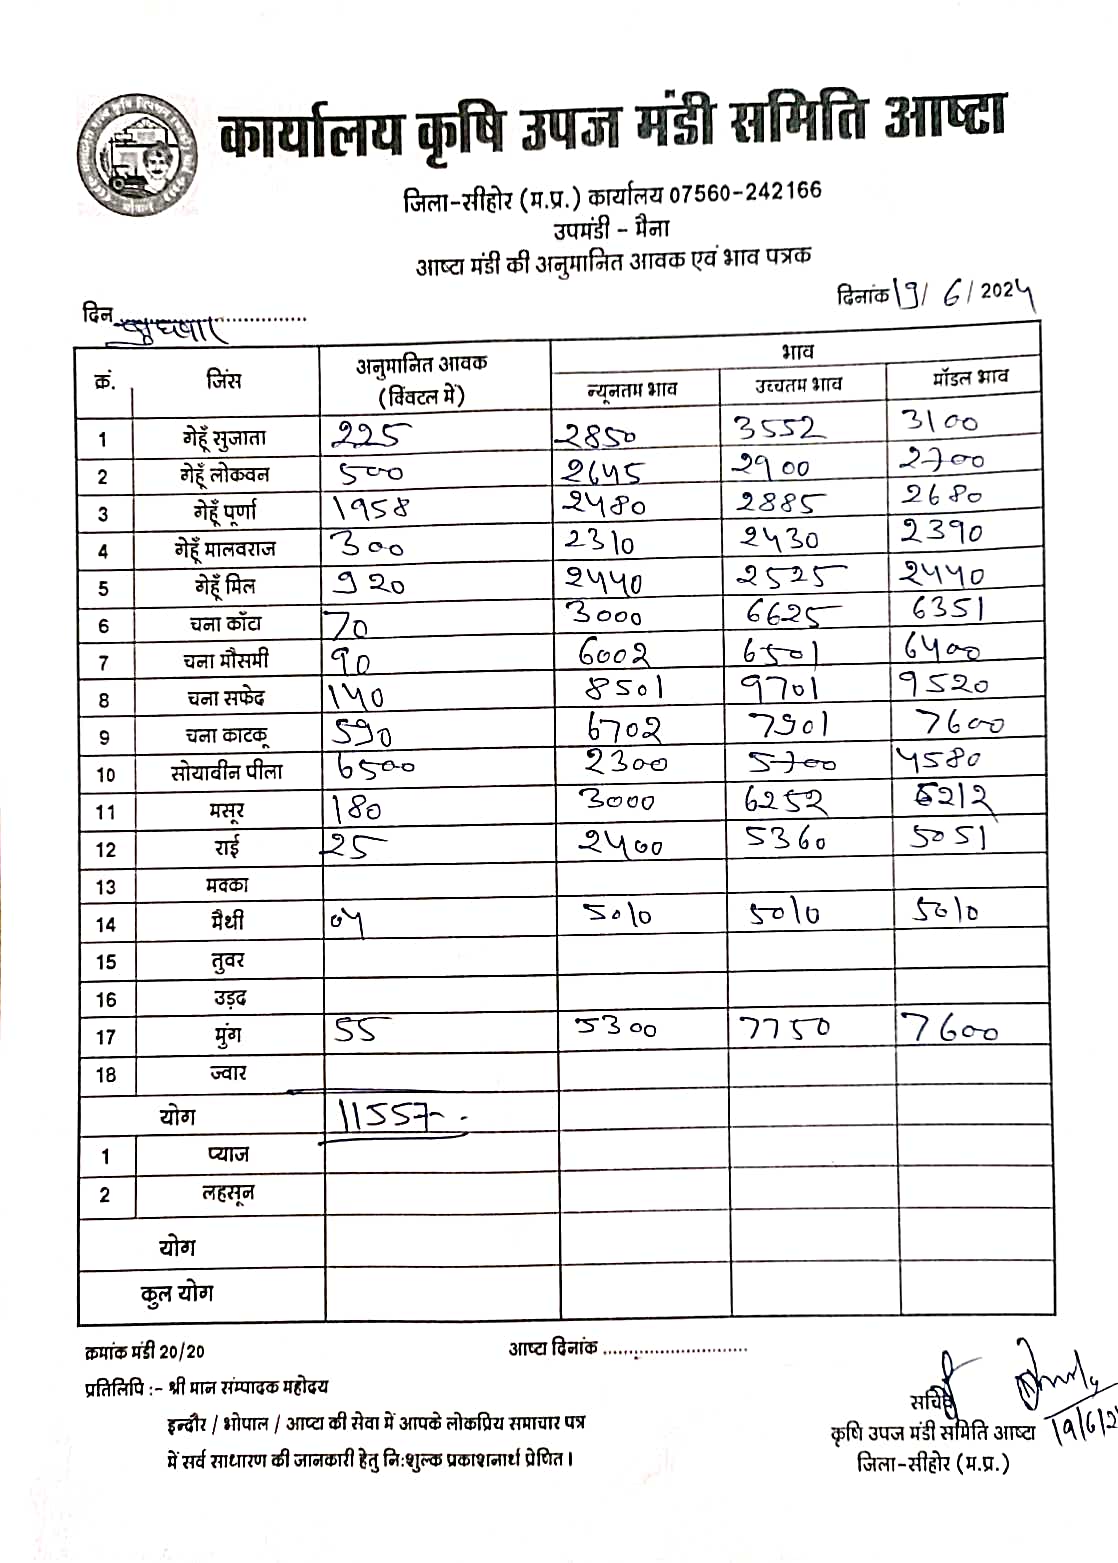 कार्यालय कृषि उपज मंडी समिति आष्टा
जिला-सीहोर (म.प्र.) कार्यालय 07560-242166
उपमंडी - मैना
आष्टा मंडी की अनुमानित आवक एवं भाव पत्रक
दिन बुधवार दिनांक 19/6/2024
क्रं. जिंस अनुमानित आवक (क्विंटल में) भाव
न्यूनतम भाव उच्चतम भाव मॉडल भाव
1 गेहूँ सुजाता 225 2850 3552 3100
2 गेहूँ लोकवन 500 2645 2900 2700
3 गेहूँ पूर्णा 1958 2480 2885 2680
4 गेहूँ मालवराज 300 2310 2430 2390
5 गेहूँ मिल 920 2440 2525 2440
6 चना कॉटा 70 3000 6625 6351
7 चना मौसमी 90 6002 6501 6400
8 चना सफेद 140 8501 9701 9520
9 चना काटकू 590 6702 7901 7600
10 सोयावीन पीला 6500 2300 5700 4580
11 मसूर 180 3000 6252 5212
12 राई 25 2400 5360 5051
13 मक्का
14 मैथी 04 5010 5010 5010
15 तुवर
16 उड़द
17 मुंग 55 5300 7750 7600
18 ज्वार
योग 11557-
1 प्याज
2 लहसून
योग
कुल योग
क्रमांक मंडी 20/20 आष्टा दिनांक ..............................
प्रतिलिपि :- श्री मान सम्पादक महोदय
इन्दौर / भोपाल / आष्टा की सेवा में आपके लोकप्रिय समाचार पत्र
में सर्व साधारण की जानकारी हेतु नि:शुल्क प्रकाशनार्थ प्रेषित।
सचिव
कृषि उपज मंडी समिति आष्टा 19/6/2
जिला-सीहोर (म.प्र.)